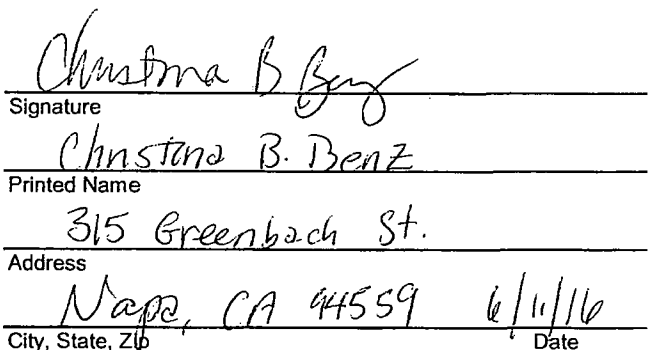 Christina B Benz
Signature
Christina B. Benz
Printed Name
315 Greenbach St.
Address
Napa, CA 94559 6/11/16
City, State, Zip Date